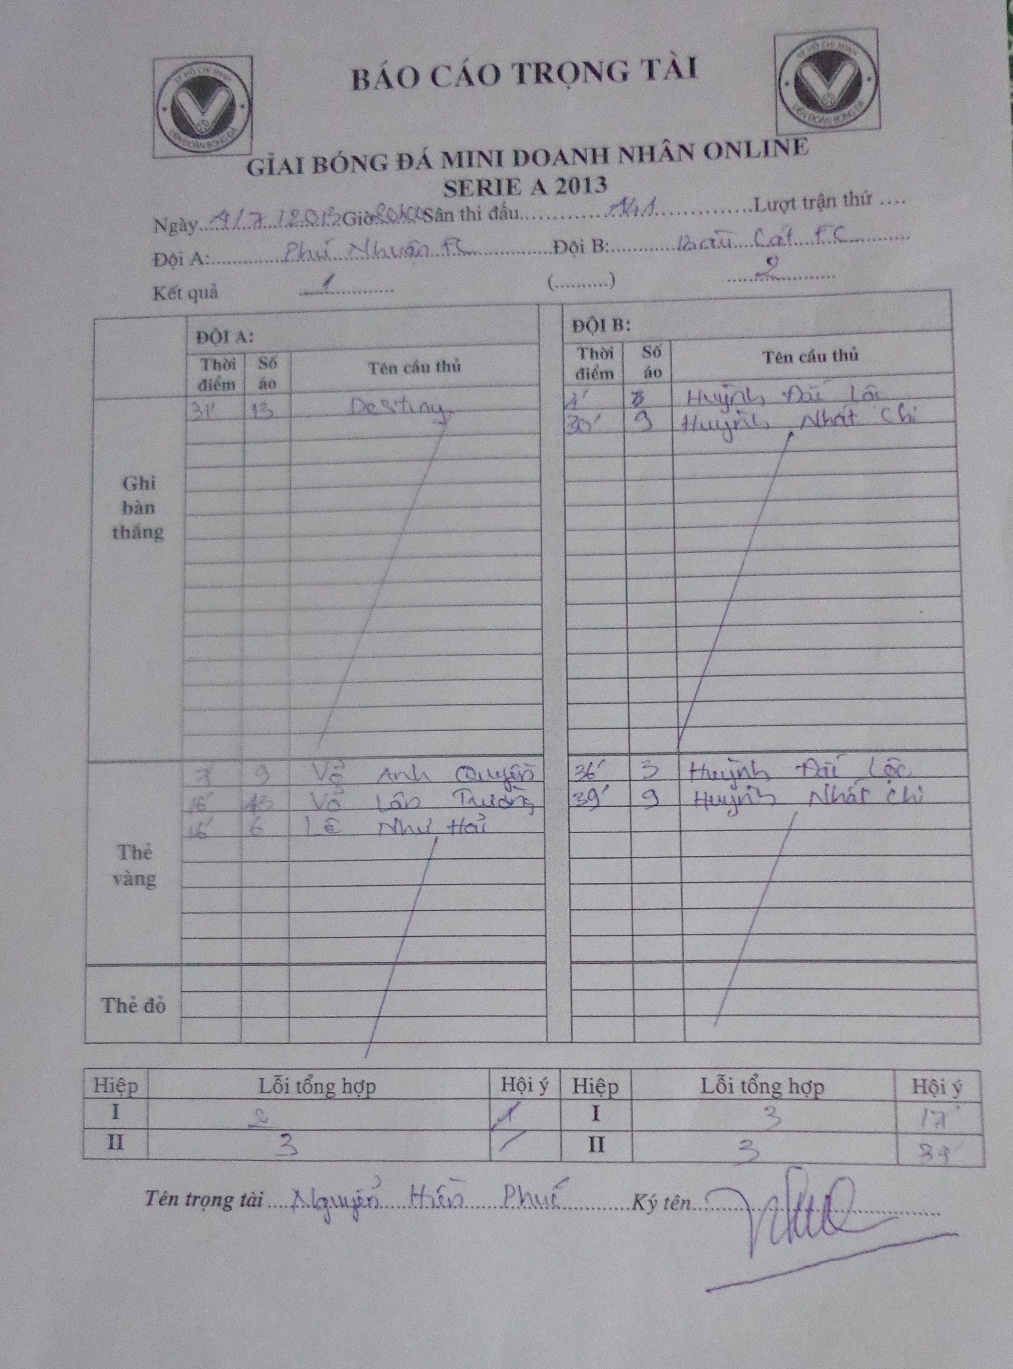 TP HỒ CHÍ MINH
LIÊN ĐOÀN BÓNG ĐÁ
TP HỒ CHÍ MINH
LIÊN ĐOÀN BÓNG ĐÁ
BÁO CÁO TRỌNG TÀI
GIẢI BÓNG ĐÁ MINI DOANH NHÂN ONLINE
SERIE A 2013
Ngày 4/7/2013 Giờ Sân thi đấu Lượt trận thứ
Đội A: Phú Nhuận FC Đội B: Bàu Cát FC
Kết quả 1 (..........) 2
ĐỘI A: ĐỘI B:
Thời điểm Số áo Tên cầu thủ Thời điểm Số áo Tên cầu thủ
Ghi bàn thắng
31' 13 Destiny Huỳnh Đắc Lộc
30' 9 Huỳnh Nhất Chi
Thẻ vàng
9 Võ Anh Quyền 36' 3 Huỳnh Đắc Lộc
16' 13 Võ Lân Trường 39' 9 Huỳnh Nhất Chi
16' 6 Lê Như Hải
Thẻ đỏ
Hiệp Lỗi tổng hợp Hội ý Hiệp Lỗi tổng hợp Hội ý
I 2 I 3 17'
II 3 II 3 39'
Tên trọng tài Nguyễn Hiền Phúc Ký tên